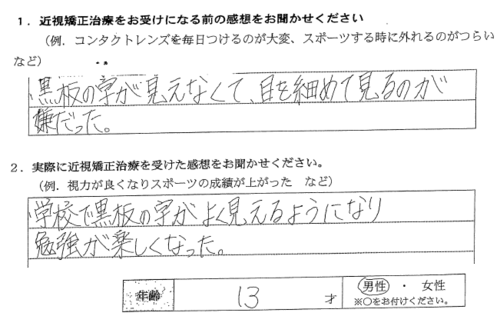 1．近視矯正治療をお受けになる前の感想をお聞かせください
（例．コンタクトレンズを毎日つけるのが大変、スポーツする時に外れるのがつらい
など）
黒板の字が見えなくて、目を細めて見るのが
嫌だった。
2．実際に近視矯正治療を受けた感想をお聞かせください。
（例．視力が良くなりスポーツの成績が上がった　など）
学校で黒板の字がよく見えるようになり
勉強が楽しくなった。
年齢　13　才　男性　・　女性
※○をお付けください。